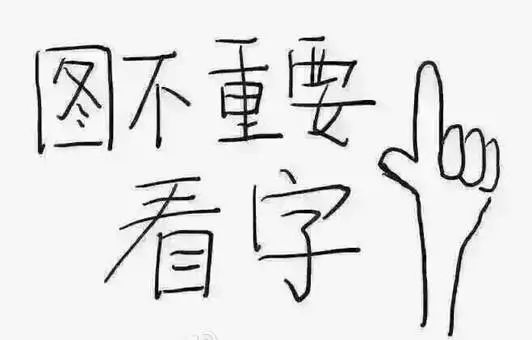 图不重要
看字